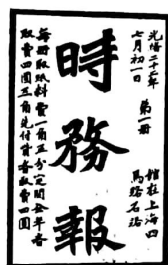 光緒二十二年
七月初一日
第一冊
館在上海四
馬路石路
時務報
每冊取紙料費一角五分定閱全年者
取費四圓五角先付資者取費四圓